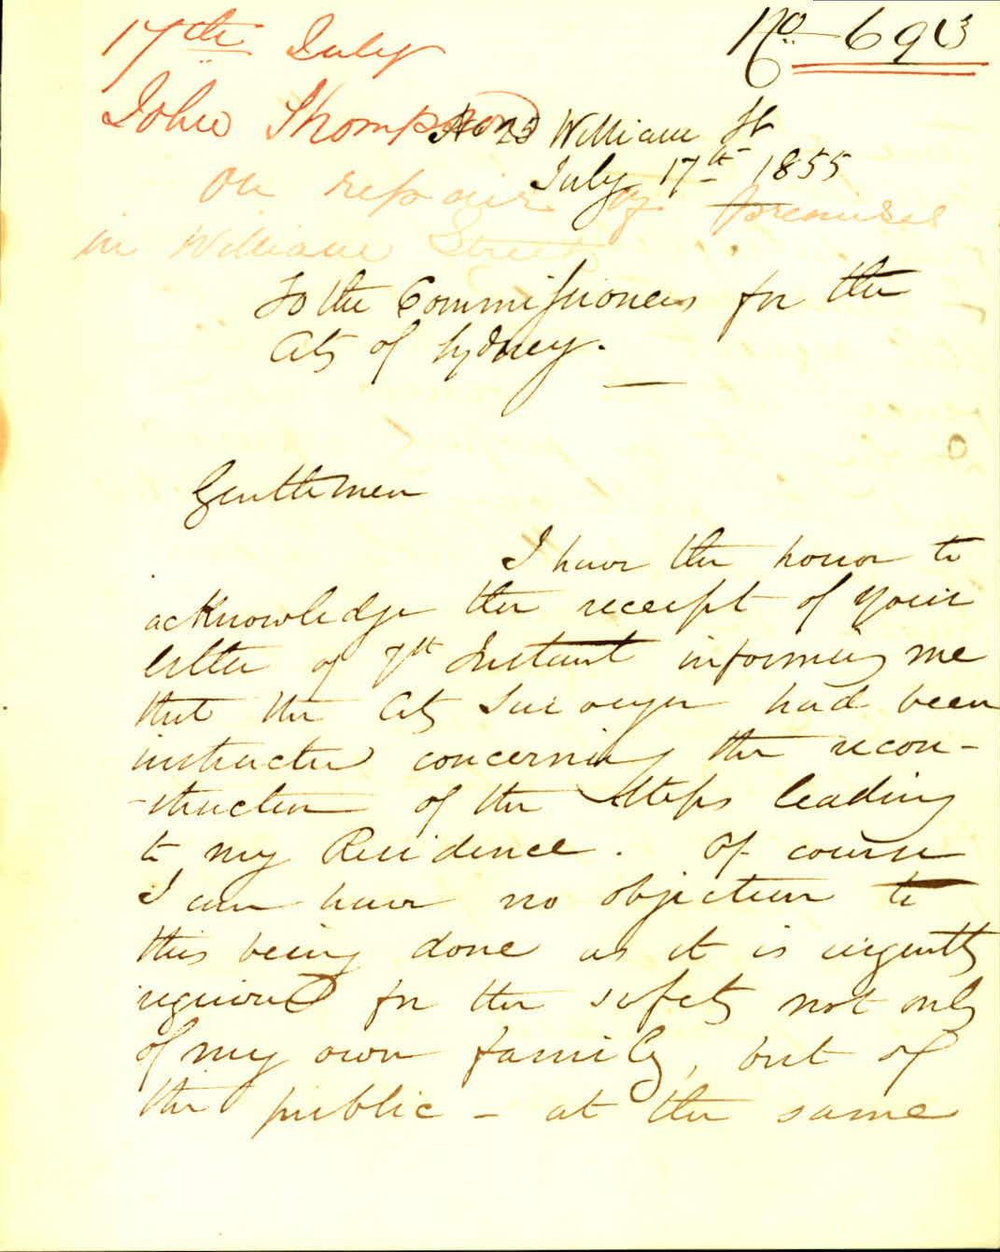 17th July
No 693
John Thompson
No 25 William St
July 17th 1855
On repair of Premises
in William Street
To the Commissioners for the
City of Sydney.
Gentlemen
I have the honor to
acknowledge the receipt of your
letter of 7th Instant informing me
that the City Surveyor had been
instructed concerning the recon-
-struction of the Steps leading
to my Residence. Of course
I can have no objection to
this being done as it is urgently
required for the safety not only
of my own family, but of
the public - at the same